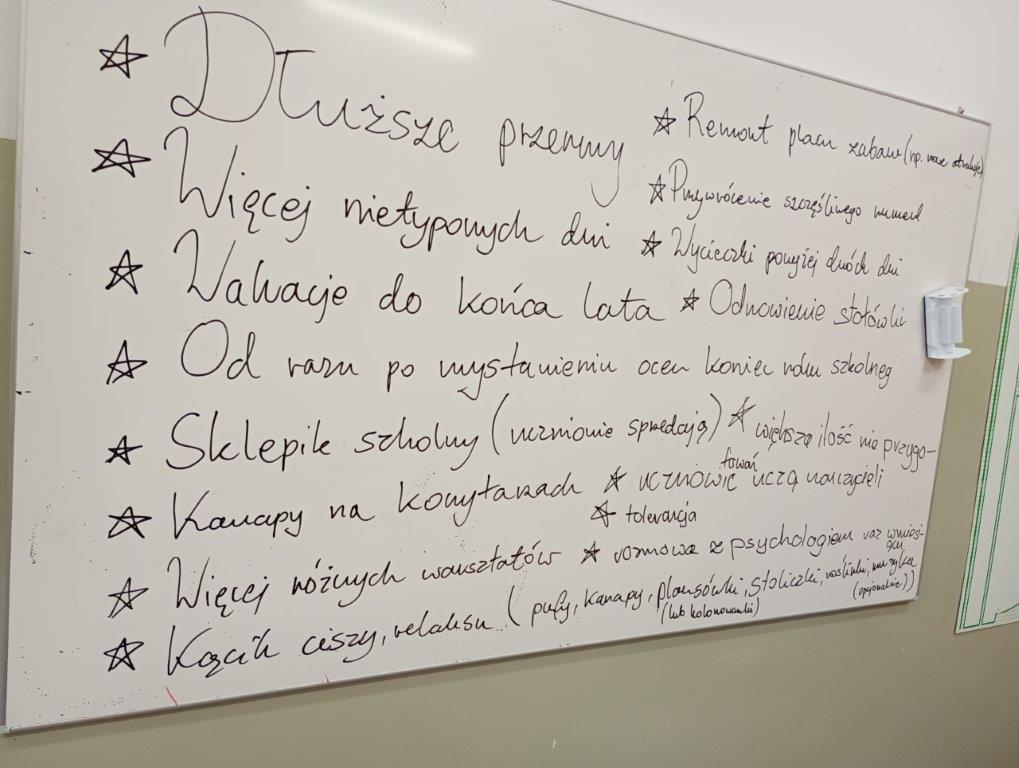 ☆ Dłuższe przerwy
☆ Więcej nietypowych dni
☆ Wakacje do końca lata
☆ Od razu po wystawieniu ocen koniec roku szkolneg
☆ Sklepik szkolny (uczniowie sprzedają)
☆ Kanapy na korytarzach
☆ Więcej różnych warsztatów
☆ Kącik ciszy, relaksu (pufy, kanapy, planszówki, stoliczki, roślinki, muzyka
(lub kolorowanki)
(opcjonalnie))
☆ Remont placu zabaw (np. nowe atrakcje)
☆ Przywrócenie szczęśliwego numerka
☆ Wycieczki powyżej dwóch dni
☆ Odnowienie stołówki
☆ większą ilość nie przygo-
towań
☆ uczniowie uczą nauczycieli
☆ tolerancja
☆ rozmowa z psychologiem raz w miesią-